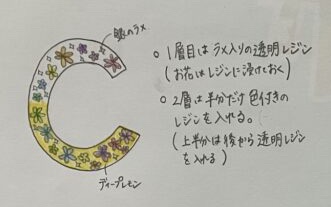 銀のラメ
○ 1層目はラメ入りの透明レジン
(お花はレジンに浸けておく)
○ 2層は半分だけ色付きの
レジンを入れる。
(上半分は後から透明レジン
を入れる)
ディープレモン